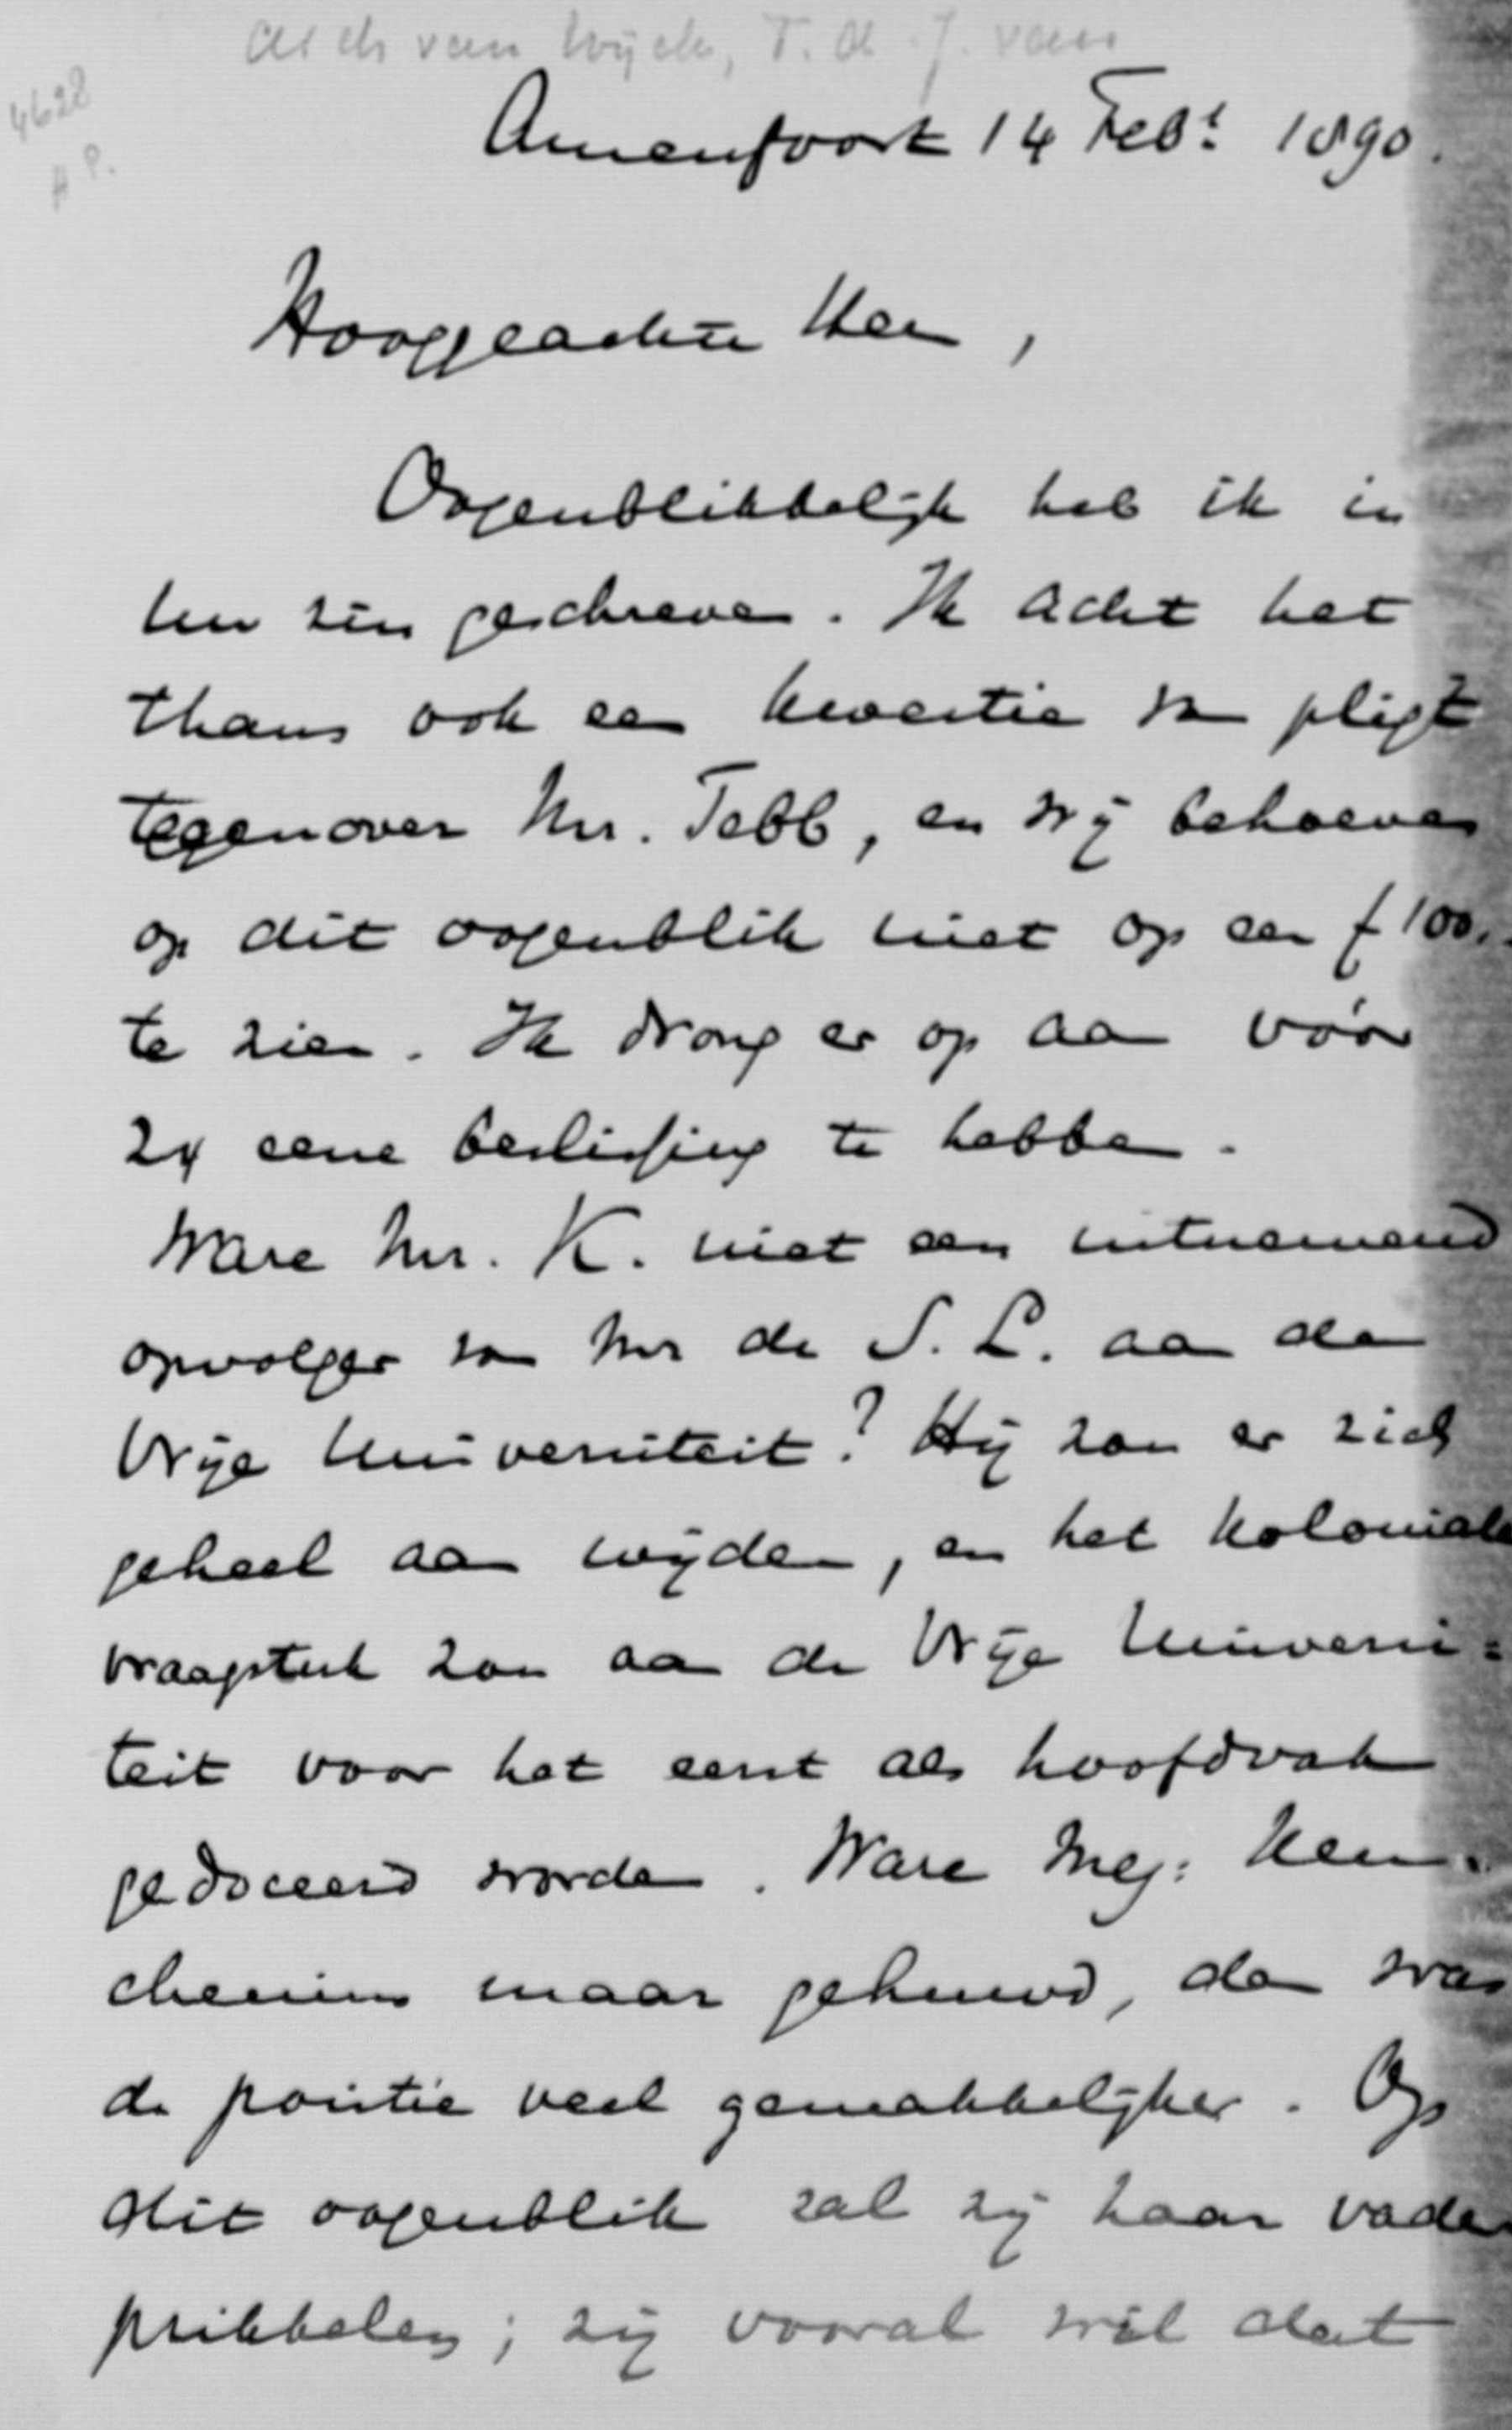 Asch van Wijck, T. A. J. van
4628
A P.
Amersfoort 14 Febr 1890.
Hooggeachte Heer,
Oogenblikkelijk heb ik in
Uw zin geschreven. Ik acht het
thans ook een kwestie van pligt
tegenover Mr. Tebb, en wij behoeven
op dit oogenblik niet op een f 100.
te zien. Ik drong er op aan vóór
24 eene beslissing te hebben.
Ware Mr. K. niet een uitnemend
opvolger van Mr de S. L. aan de
Vrije Universiteit? Hij zou er zich
geheel aan wijden, en het koloniale
vraagstuk zou aan de Vrije Universi=
teit voor het eerst als hoofdvak
gedoceerd worden. Ware Mej: Keu-
chenius maar gehuwd, dan was
de positie veel gemakkelijker. Op
dit oogenblik zal zij haar vader
prikkelen; zij vooral wil dat